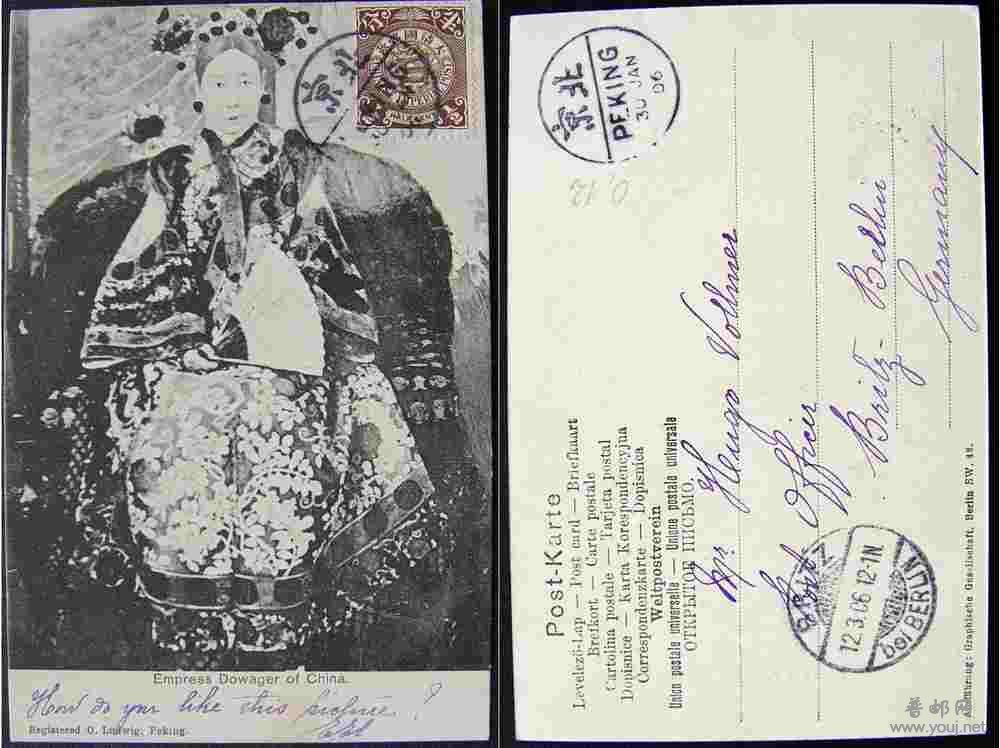 北京
Empress Dowager of China.
How do you like this picture?
Registered O. Ludwig, Peking.
北京
PEKING
30 JAN
06
0.12
Post-Karte
Levelező-Lap — Post card — Briefkaart
Brefkort — Carte postale
Cartolina postale — Tarjeta postal
Dopisnice — Karta Korespondencyjna
Correspondenzkarte — Dopisnica
Weltpostverein
Union postale universelle — Unione postale universale
ОТКРЫТОЕ ПИСЬМО.
Mr. Hugo Vollmer
Post Officir
Britz - Berlin
Germany
BRITZ
12.3.06.12-1N
bei BERLIN
Ausführung: Graphische Gesellschaft, Berlin SW. 48.
普邮网
www.youj.net